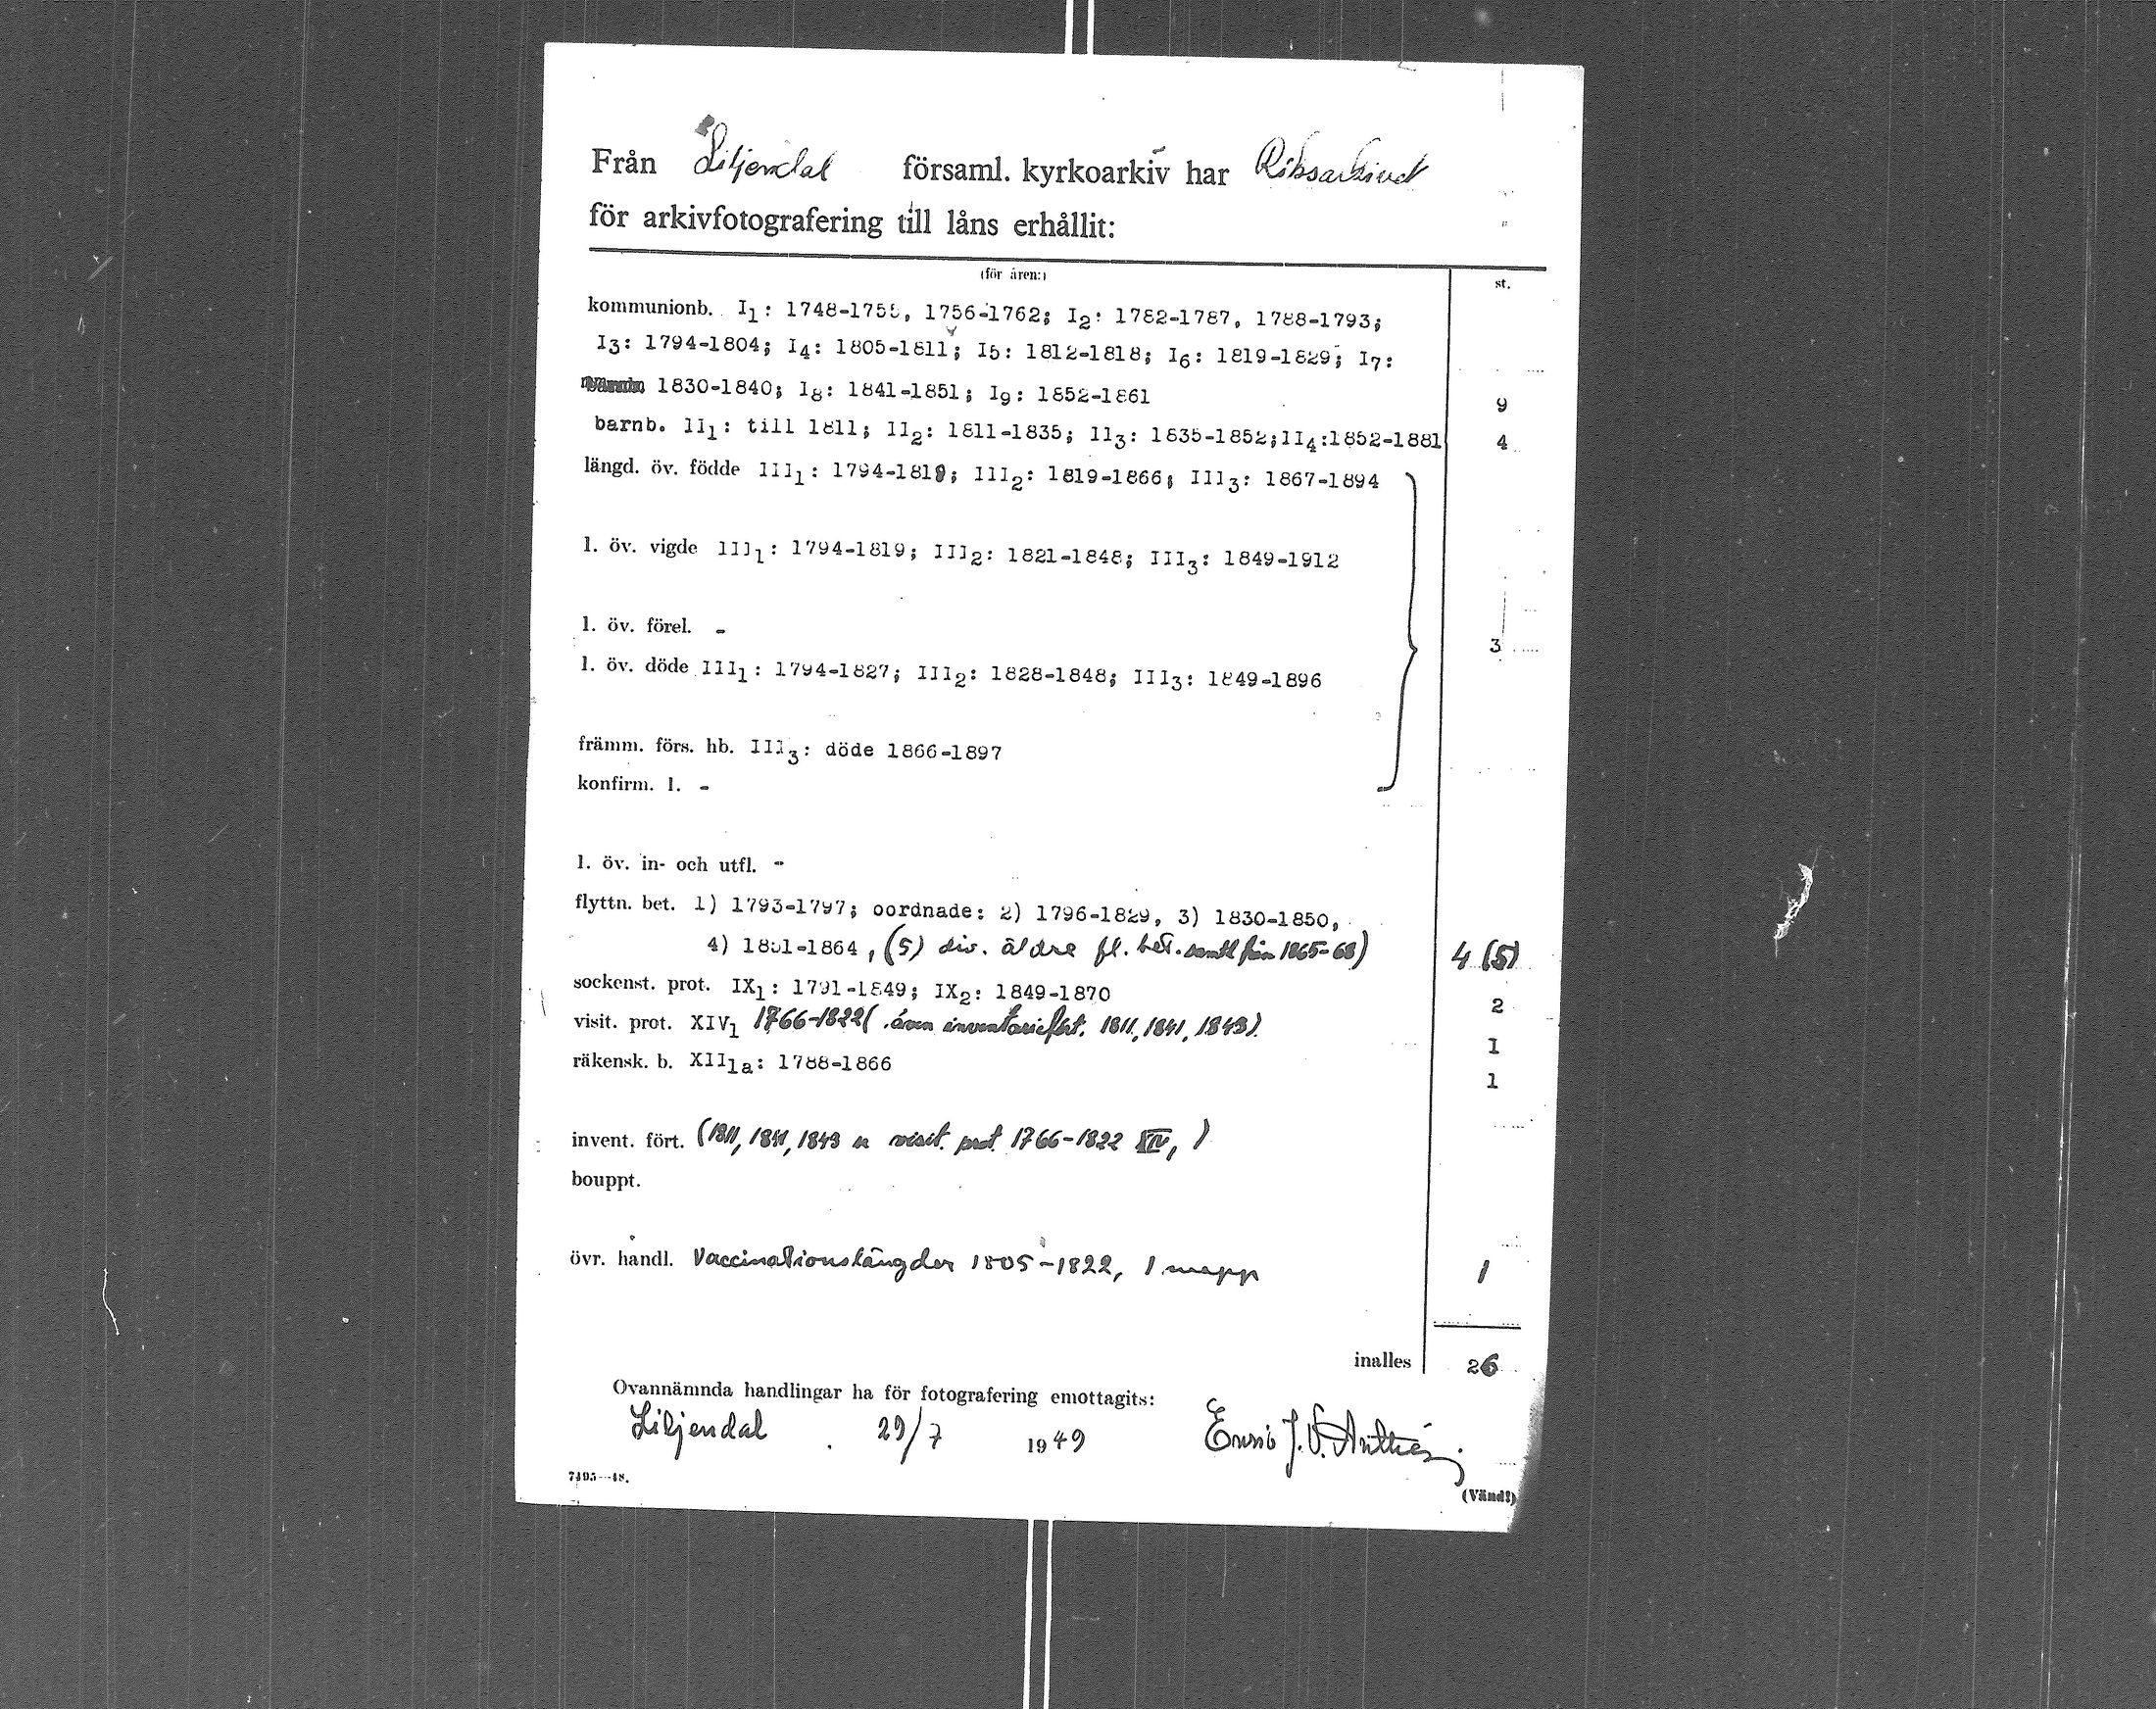 Från Liljendal församl. kyrkoarkiv har Riksarkivet
för arkivfotografering till låns erhållit:
(för åren:) st.
kommunionb. I1: 1748-1755, 1756-1762; I2: 1782-1787, 1788-1793;
I3: 1794-1804; I4: 1805-1811; I5: 1812-1818; I6: 1819-1829; I7:
1830-1840; I8: 1841-1851; I9: 1852-1861 9
barnb. II1: till 1811; II2: 1811-1835; II3: 1835-1852; II4:1852-1881 4
längd. öv. födde III1: 1794-1819; III2: 1819-1866; III3: 1867-1894
l. öv. vigde III1: 1794-1819; III2: 1821-1848; III3: 1849-1912
l. öv. förel. - 3
l. öv. döde III1: 1794-1827; III2: 1828-1848; III3: 1849-1896
främm. förs. hb. III3: döde 1866-1897
konfirm. l. -
l. öv. in- och utfl. -
flyttn. bet. 1) 1793-1797; oordnade: 2) 1796-1829, 3) 1830-1850,
4) 1851-1864, (5) div. äldre fl. bet. samtl från 1865-68) 4 (5)
sockenst. prot. IX1: 1791-1849; IX2: 1849-1870 2
visit. prot. XIV1 1766-1822 (även inventariefört. 1811, 1841, 1843). 1
räkensk. b. XII1a: 1788-1866 1
invent. fört. (1811, 1841, 1843 visit. prot 1766-1822 XIV1)
bouppt.
övr. handl. Vaccinationslängder 1805-1822, 1 mapp 1
inalles 26
Ovannämnda handlingar ha för fotografering emottagits:
Liljendal . 29/7 1949
7495--48.
(Vänd!)